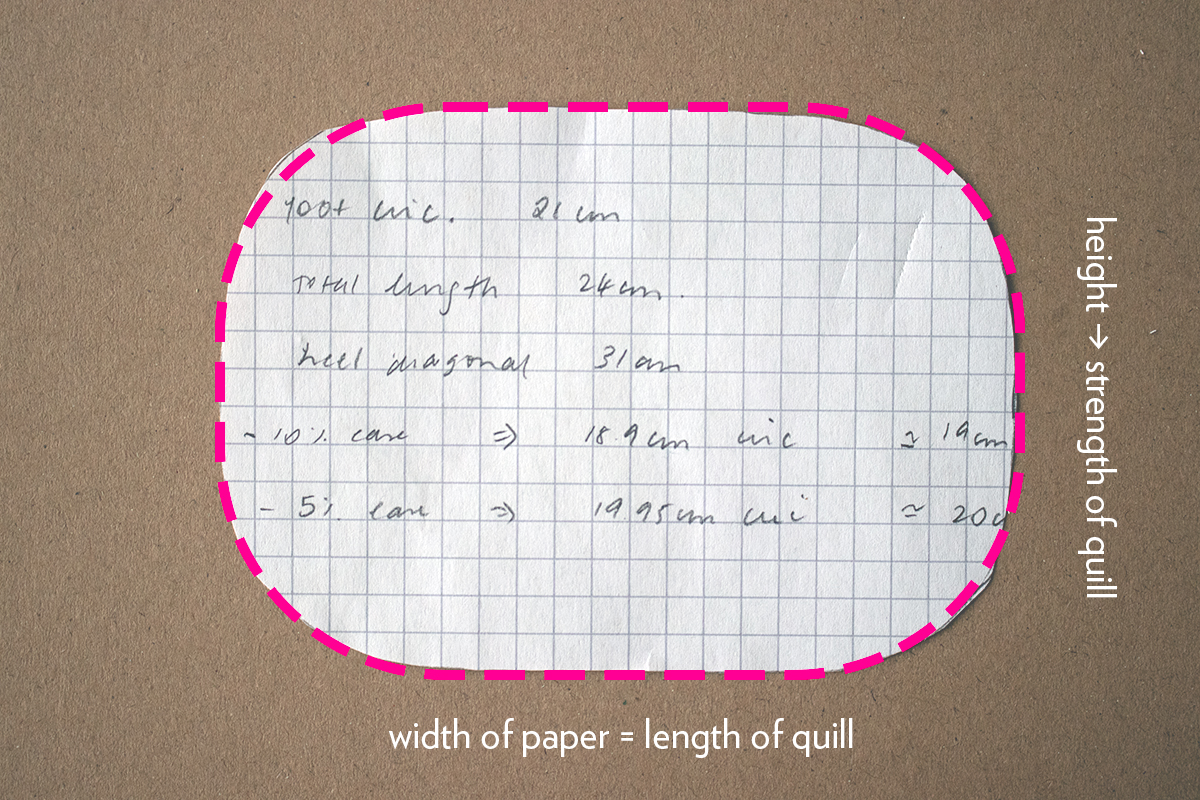 foot circ. 21 cm
Total length 24 cm.
heel diagonal 31 cm
- 10% ease ⇒ 18.9 cm circ ≃ 19 cm
- 5% ease ⇒ 19.95 cm circ ≃ 20c
height → strength of quill
width of paper = length of quill